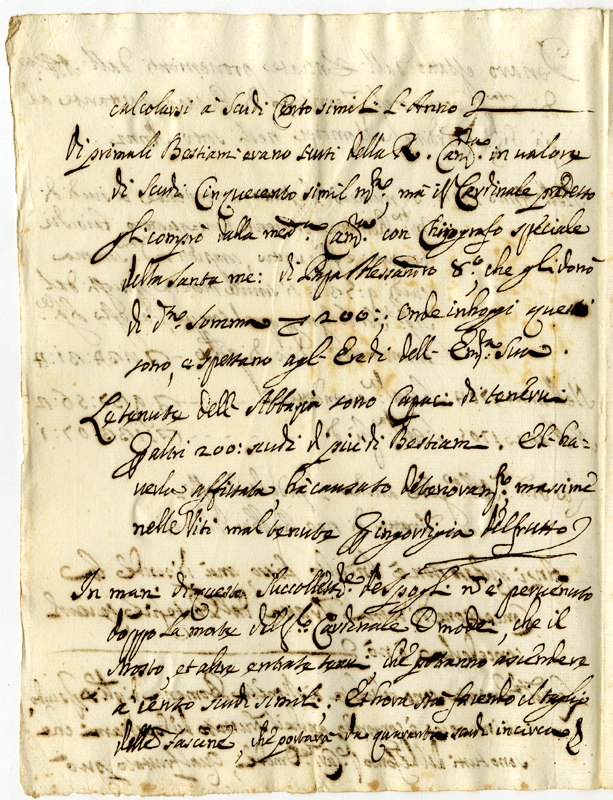 calcolarsi à scudi Cento simili l'Anno
Di prima li Bestiami erano tutti della R. Cam.ra in valore
di scudi Cinquecento simil m.ta, mà il Cardinale predetto
gli comprò dalla med.a Cam.ra con Chirografo speciale
della santa me: di Papa Alessandro 8.o, che gli donò
di d.a somma 200:, onde in hoggi questi
sono, e spettano agl'Eredi dell' Em.za Sua.
Le tenute dell' Abbazia sono Capaci di tenervi
altri 200: scudi di più di Bestiami. Et l'ha-
verla affittata, hà causato deterioram.to, massime
nelle Viti mal tenute ingordigia del frutto
In mani di questo Succollett.re de spogli n. è pervenuto
doppo la morte del Cardinale, che il
Mosto, et altre entrate che potranno ascendere
a cento scudi simili. Et hora stà facendo il taglio
delle fascine, che porterà da quaranta scudi incirca